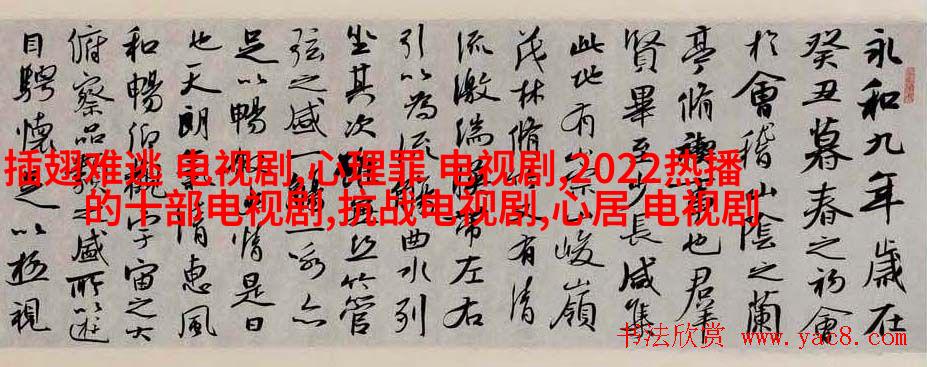 永和九年歲在
癸丑暮春之初會
於會稽山陰之蘭
亭脩禊事也群
賢畢至少長咸集
此地有崇山峻嶺
茂林脩竹又有清
流激湍暎帶左右
引以為流觴曲水列
坐其次雖無絲竹管
弦之盛一觴一詠亦
足以暢敘幽情是日
也天朗氣清惠風
和暢仰觀宇宙之大
俯察品類之盛所以遊
目騁懷足以極視
插翅难逃 电视剧,心理罪 电视剧,2022热播
的十部电视剧,抗战电视剧,心居 电视剧
书法欣赏 www.yac8.com